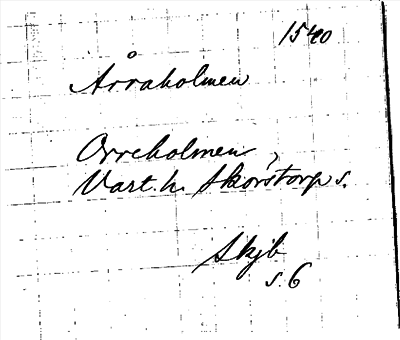 1540
Årraholmen
Orreholmen,
Vart. h. Skörstorp s.
Skjb
s. 6